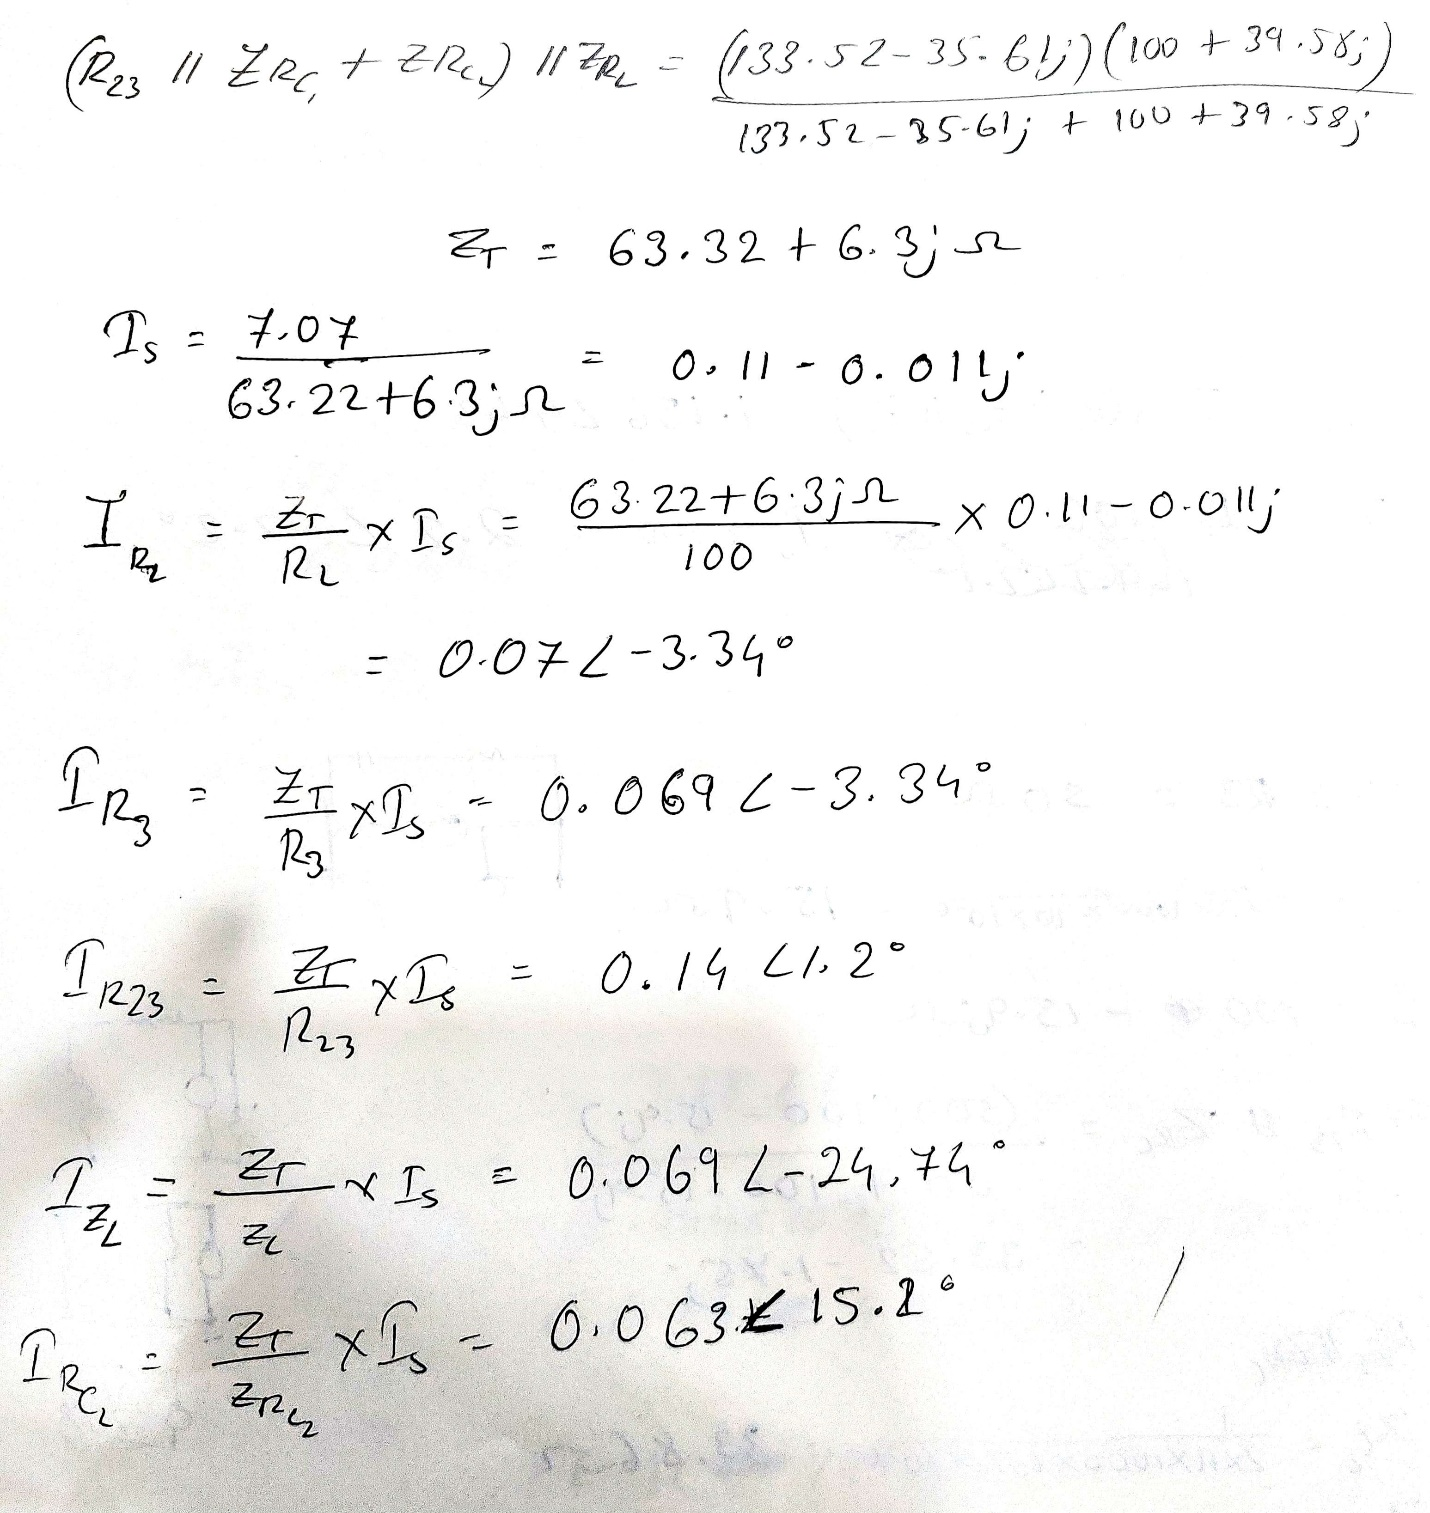 (R23 // ZRC1 + ZRC2) // ZRL = (133.52-35.61j)(100+39.58j)
133.52-35.61j + 100+39.58j
ZT = 63.32 + 6.3j Ω
Is = 7.07
63.22+6.3jΩ = 0.11 - 0.011j
IR2 = ZT/R2 × Is = 63.22+6.3jΩ/100 × 0.11-0.011j
= 0.07∠-3.34°
IR3 = ZT/R3 × Is = 0.069∠-3.34°
IR23 = ZT/R23 × Is = 0.14∠1.2°
IZL = ZT/ZL × Is = 0.069∠-24,74°
IRC2 = ZT/ZRC2 × Is = 0.063∠15.2°